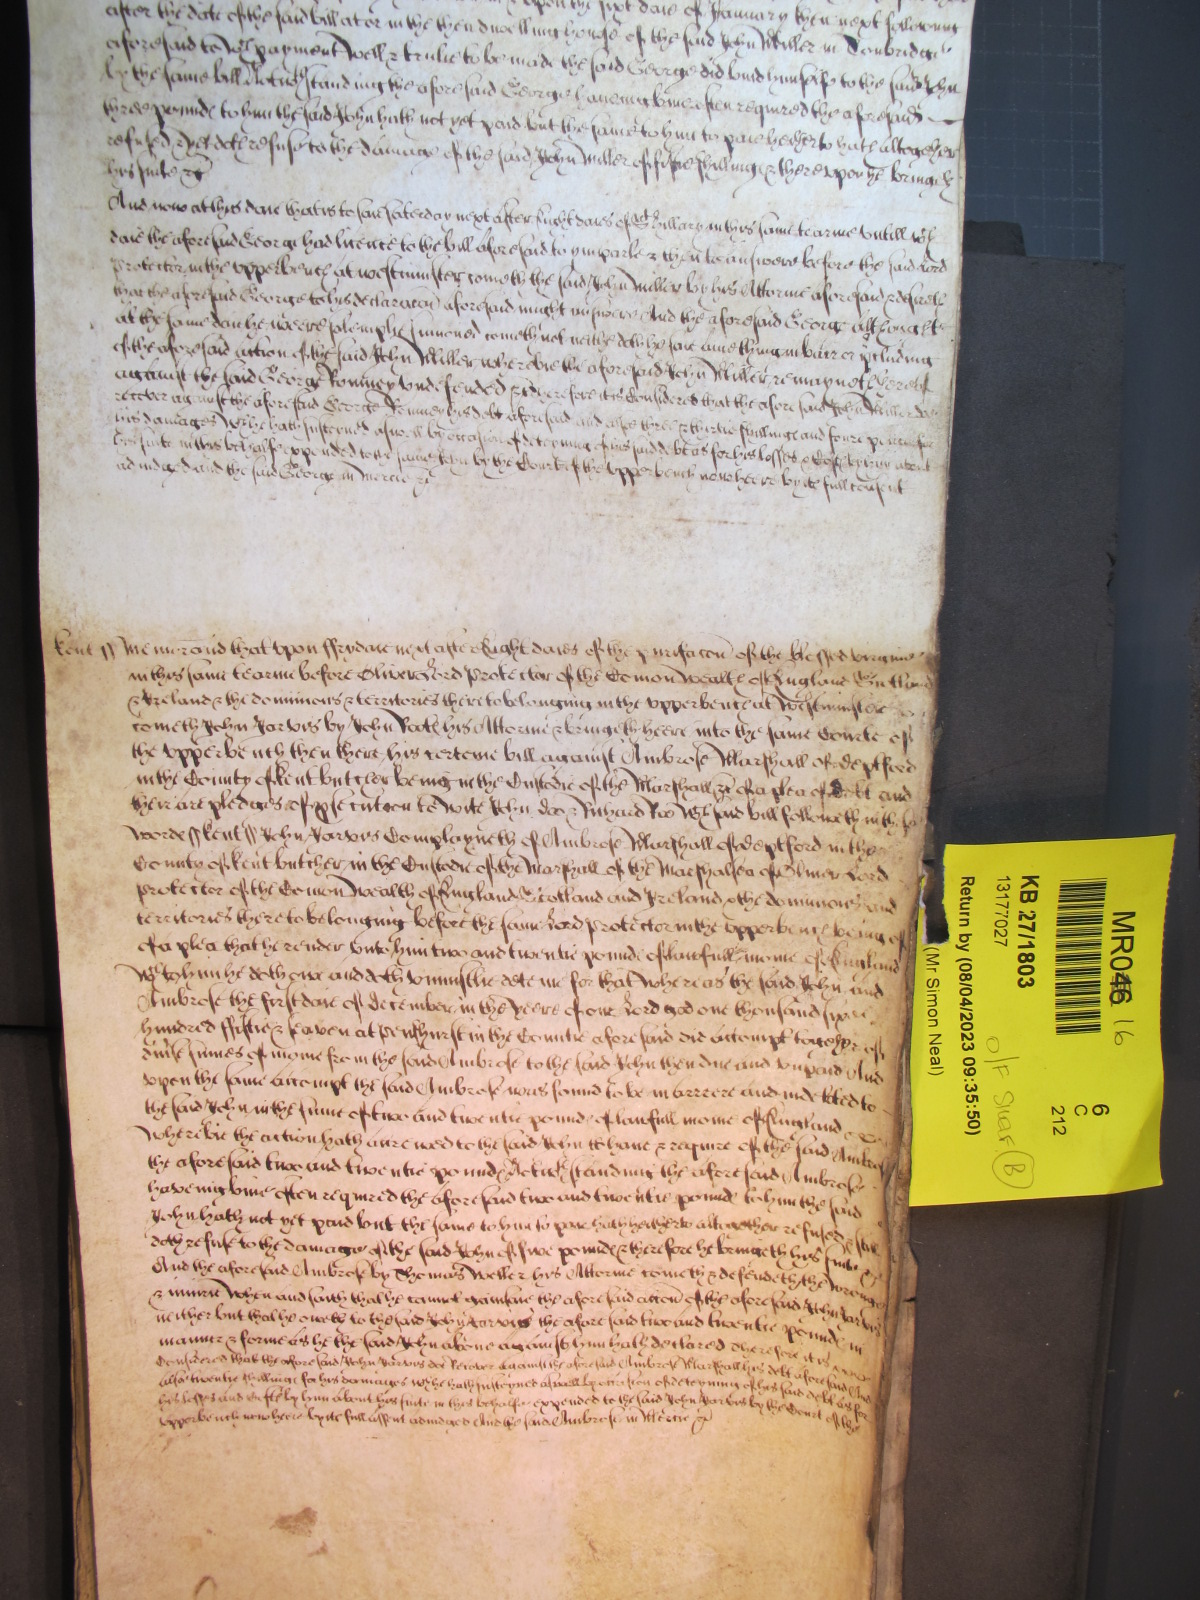 upon the first daie of January then next following
after the date of the said bill at or in the then dwelling house of the said John Miller in Tonbridge
aforesaid to wch payment well & trulie to be made the said George did bind himself to the said John
by the same bill Notwthstanding the aforesaid George haveing bine often required the aforesaid
three pounds to him the said John hath not yet paid but the same to him to paie hetherto hath altogether
refused & yet doth refuse to the damage of the said John Miller of fiftie shillings & thereupon he bringeth
his suite &c
And now at this daie that is to saie Saturday next after Eight daies of St Hillary in this same tearme untill wch
daie the aforesaid George had licence to the bill aforesaid to imparle & then to answere before the said Lord
Protector in the upper bench at westminster cometh the said John Miller by his Attorne aforesaid & desireth
that the aforesaid George to his declaracon aforesaid might answere And the aforesaid George although
at the same daie he weere solemply sumoned cometh not neither doth he saie anie thing in barr or precluding
of the aforesaid action of the said John Miller whereby the aforesaid John Miller remayneth thereof
against the said George Romney undefended & therefore it is Considered that the aforesaid John Miller doe
recover against the aforesaid George Romney his debt aforesaid and alsoe three & thirtie shillings and foure pence for
his damages wch he hath susteyned aswell by occasion of deteyning of his said debt as for his losses & Costs by him about
his suite in this behalfe expended to the same John by the Court of the upper bench now heere by its full consent
adiudged and the said George in mercie &c
Kent ss Memorand that upon ffrydaie next after Eight daies of the purificacon of the blessed virgine
in this same tearme before Oliver Lord Protector of the Comon wealth of England Scotland
& Ireland & the dominions & territories thereto belonging in the upper bench at Westminster
cometh John Jarvis by John his Attorne & bringeth heere into the same Courte of
the upper bench then there his certeine bill against Ambrose Marshall of deptford
in the County of kent butcher being in the Custodie of the Marshall &c of a plea of debt and
there are pledges of prosecution to wite John doo & Richard Roo wch said bill followeth in theis
wordes ss kent ss John Jarvis Complayneth of Ambrose Marshall of deptford in the
County of kent butcher in the Custodie of the Marshall of the Marshalsea of Oliver Lord
protector of the Comon wealth of England Scotland and Ireland & the dominions and
territories thereto belonging before the same Lord Protector in the upper bench being of
of a plea that he render unto him two and twentie pounds of lawfull monie of England
wch to him he doth owe and doth uniustlie deteine for that whereas the said John and
Ambrose the first daie of december in the yeere of our Lord god one thousand six
hundred fiftie & seaven at Penshurst in the Countie aforesaid did attompt together of
divse sumes of monie from the said Ambrose to the said John then due and unpaid And
upon the same attompt the said Ambrose was found to be in arrere and indebted to
the said John in the sume of two and twentie pounds of lawfull monie of England
whereby the action hath accrewed to the said John to have & require of the said Ambrose
the aforesaid two and twentie pounds Notwthstanding the aforesaid Ambrose
haveing bine often required the aforesaid two and twentie pounds to him the said
John hath not yet paid but the same to him to paie hath hetherto altogether refused & still
doth refuse to the damage of the said John of five pounds & therefore he bringeth his suite &c
And the aforesaid Ambrose by Thomas Weller his Attorne cometh & defendeth the wronge
& iniurie when and saith that he cannot gainsaie the aforesaid accon of the aforesaid John Jarvis
neither but that he oweth to the said John Jarvis the aforesaid two and twentie pounds in
manner & forme as he the said John above against him hath declared Therefore it is
Considered that the aforesaid John Jarvis doe recover against the aforesaid Ambrose Marshall his debt aforesaid And
alsoe twentie shillings for his damages wch he hath susteyned aswell by occasion of deteyning of his said debt as for
his losses and Costs by him about his suite in this behalfe expended to the said John Jarvis by the Court of the
upper bench now heere by its full assent adiudged And the said Ambrose in Mercie &c
MR046 16
6
C
212
o/f Swaf (B)
KB 27/1803
13177027
Return by (08/04/2023 09:35:50)
(Mr Simon Neal)